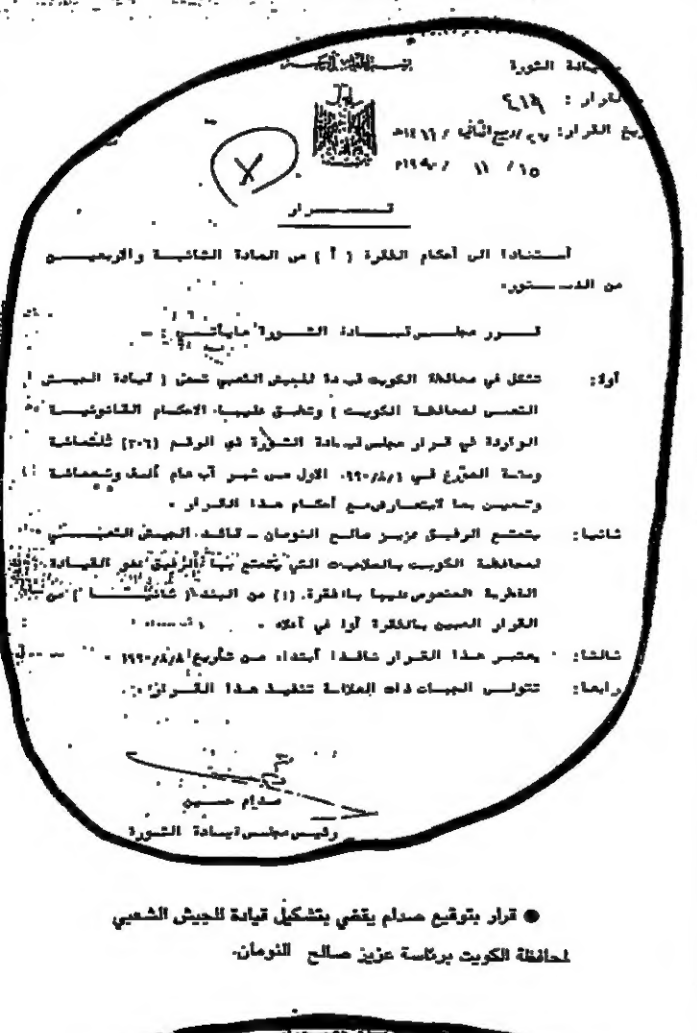 بسم الله الرحمن الرحيم
قيادة الثورة
القرار :
القرار: ربيع الثاني
١٥ / ١١ /
قـــرار
أستنادا الى أحكام الفقرة ( أ ) من المادة الثانية والاربعيـن
من الدستور.
قـرر مجلس قيادة الثورة مايأتـي : -
أولا: تشكل في محافظة الكويت قيادة للجيش الشعبي تسمى ( قيادة الجيش
الشعبي لمحافظة الكويت ) وتطبق عليها الاحكام القانونية
الواردة في قرار مجلس قيادة الثورة ذي الرقم (٣٠٦) ثلثمائة
وستة المؤرخ فـي الاول من شهر آب عام ألف وتسعمائة
وتسعين بما لايتعارض مع أحكام هذا القرار .
ثانيا: يتمتع الرفيق عزيز صالح النومان - قائد الجيش الشعبـي
لمحافظة الكويت بالصلاحيات التي يتمتع بها الرفيق عضو القيادة
القطرية المنصوص عليها بالفقرة (١) من البند ( ثانيـا ) من
القرار المبين بالفقرة أولا في أعلاه .
ثالثا: يعتبر هذا القرار نافذا أبتداء من تأريخ ٨/٨/١٩٩٠ .
رابعا: تتولى الجهات ذات العلاقة تنفيذ هذا القرار .
صدام حسين
رئيس مجلس قيادة الثورة
● قرار بتوقيع صدام يقضي بتشكيل قيادة للجيش الشعبي
لمحافظة الكويت برئاسة عزيز صالح النومان.